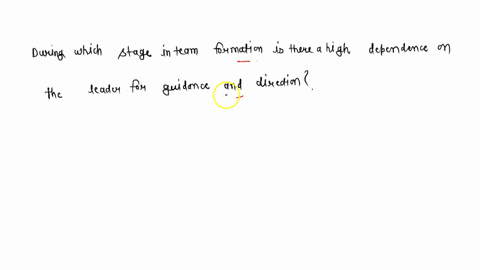 During which stage in team formation is there a high dependence on
the leader for guidance and direction?.